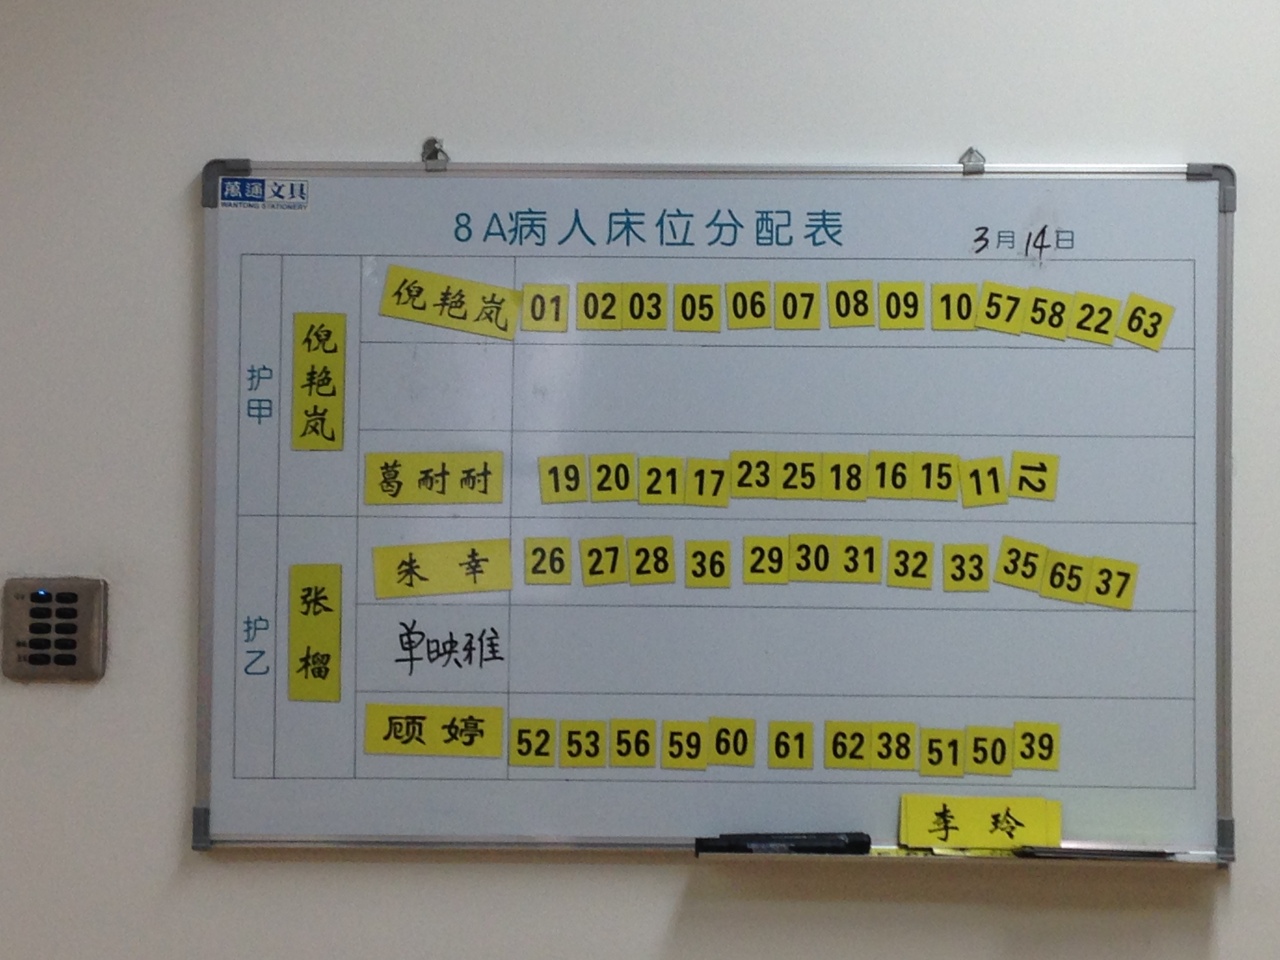 萬通 文具
WANTONG STATIONERY
8A病人床位分配表
3月14日
护甲
倪艳岚
倪艳岚 01 02 03 05 06 07 08 09 10 57 58 22 63
葛耐耐 19 20 21 17 23 25 18 16 15 11 12
护乙
张榴
朱幸 26 27 28 36 29 30 31 32 33 35 65 37
单映雅
顾婷 52 53 56 59 60 61 62 38 51 50 39
李玲